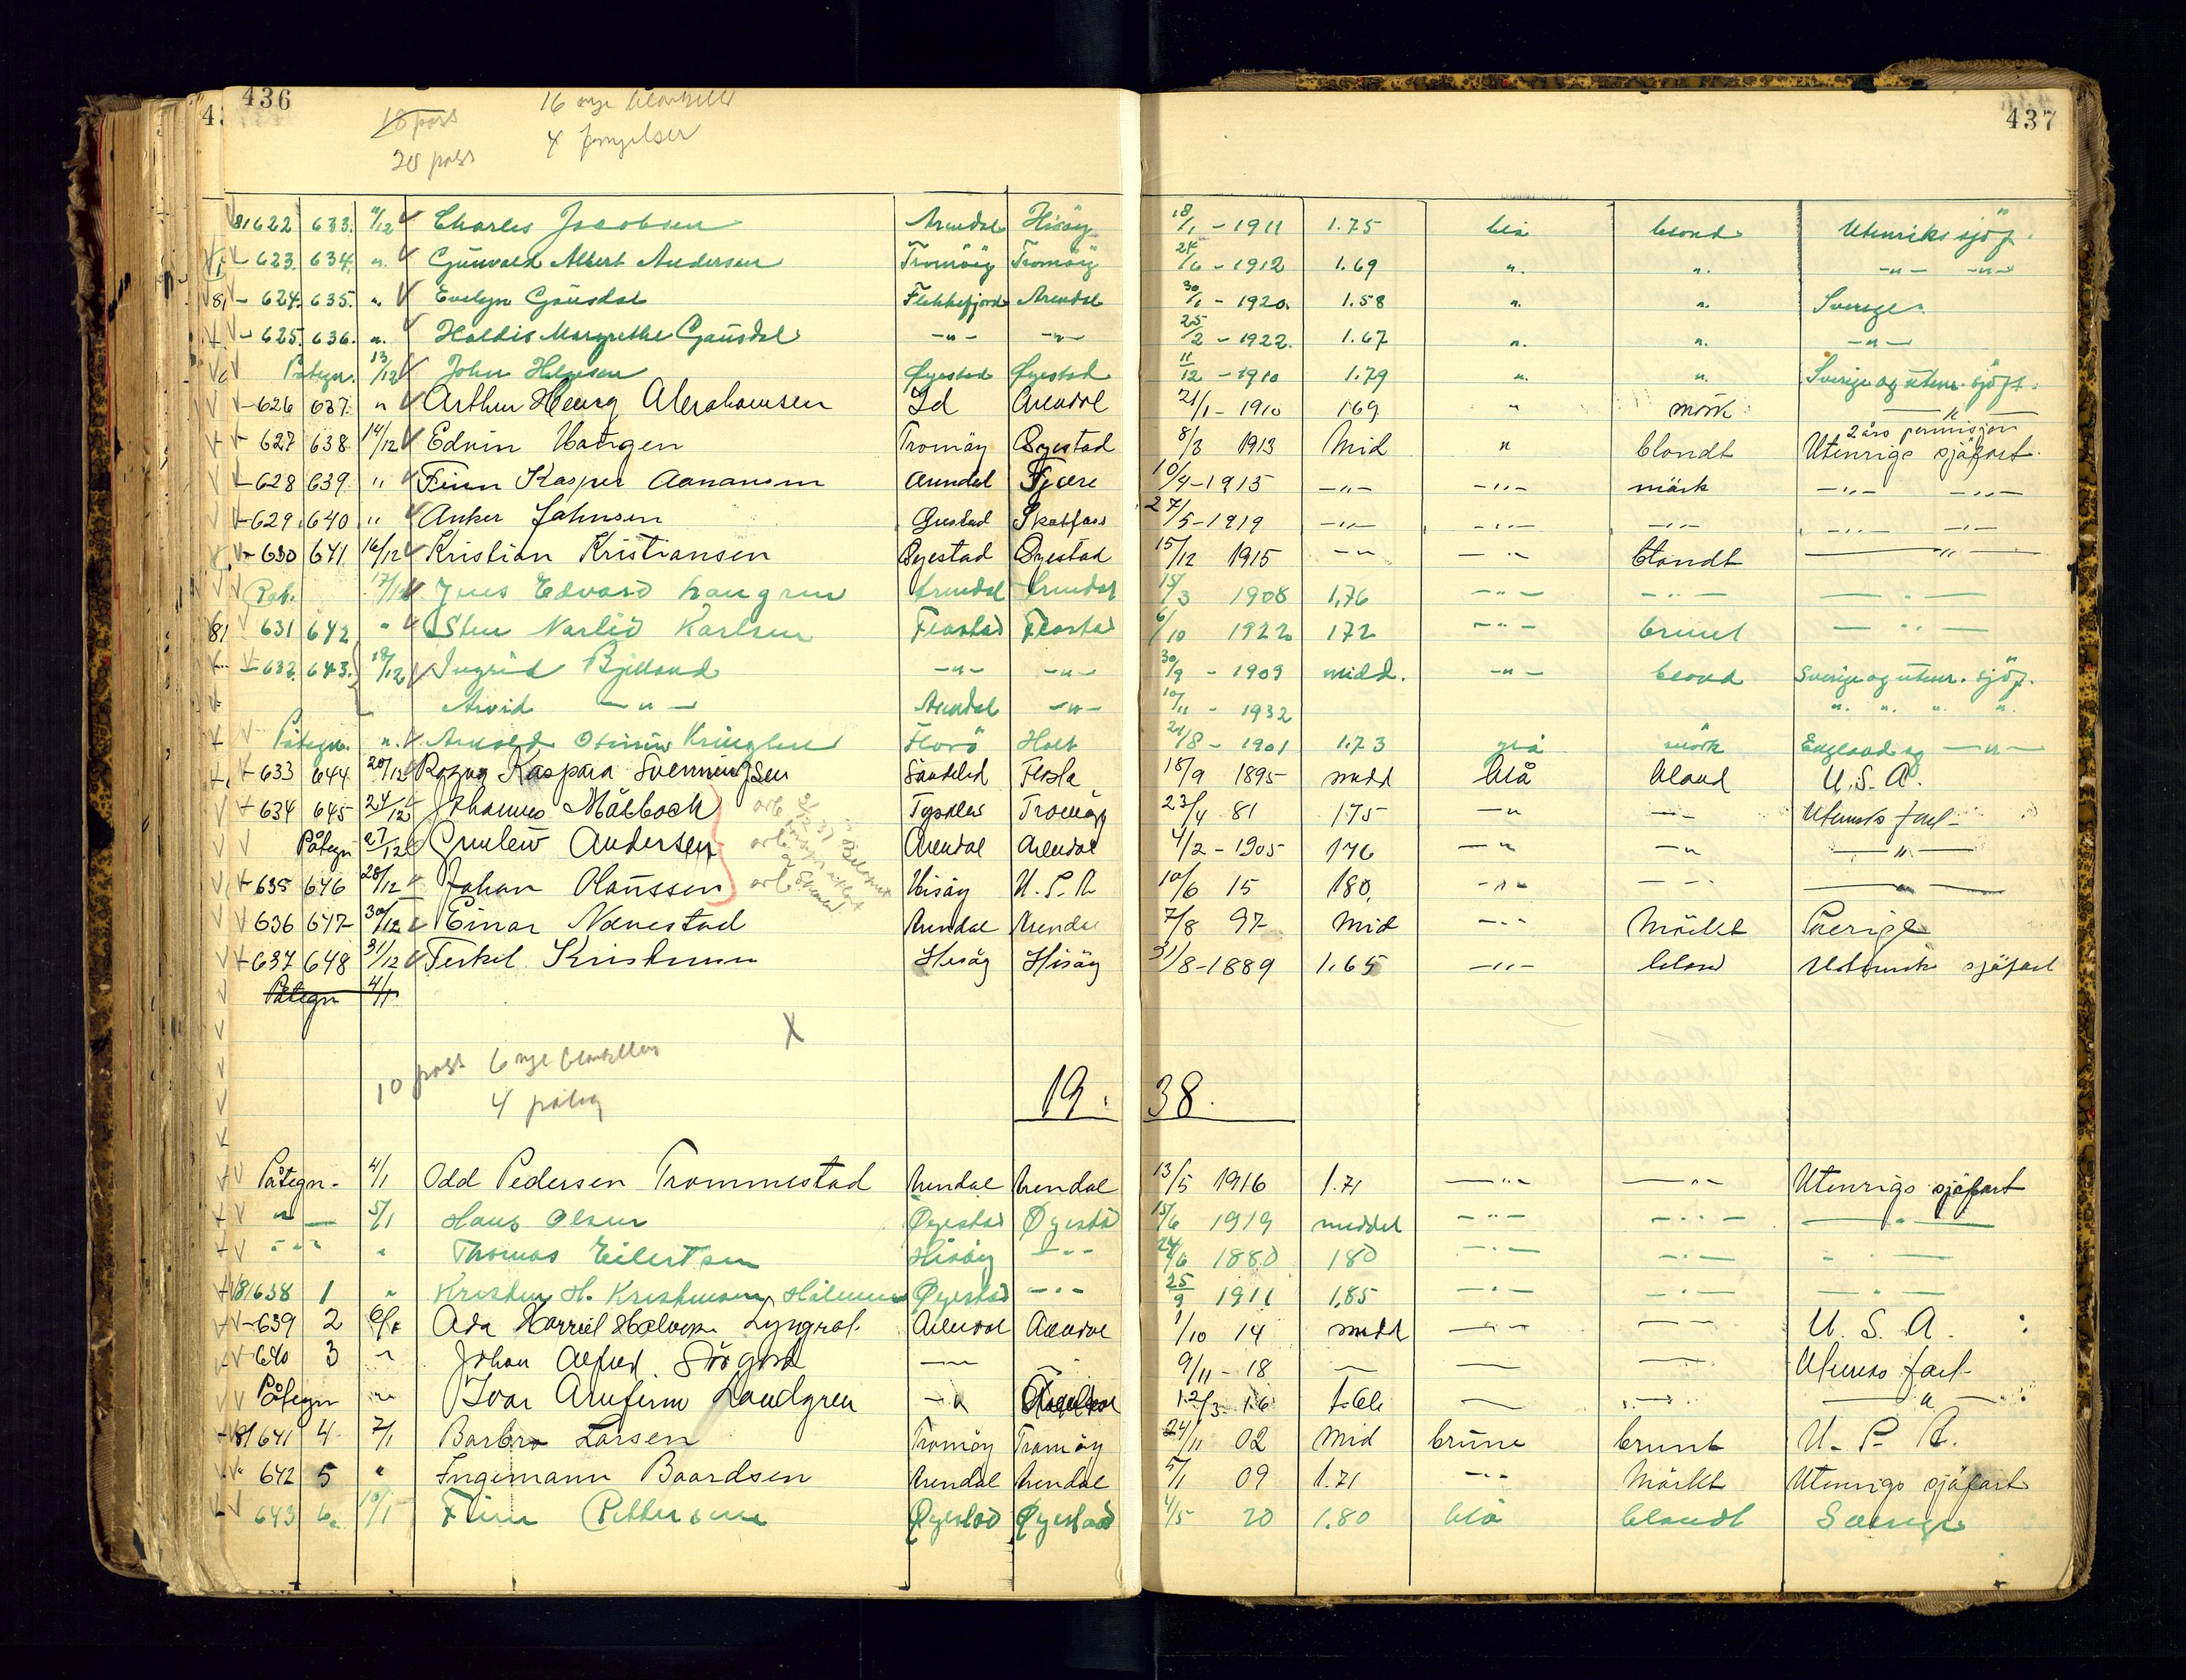 436
437
18 pass
16 nye blanketter
20 pass
4 fornyelser
81622 633. 11/12 Charles Jacobsen Arendal Hisöy 18/1 - 1911 1.75 blå blond Utenriks sjöf.
- 623. 634. „. Gunvald Albert Andersen Tromöy Tromöy 24/6 - 1912 1.69 „. „. -„- -„-
81 - 624. 635. „. Evelyn Gausdal Flekkefjord Arendal 30/1 - 1920. 1.58 „. „. Sverige.
- 625. 636. „. Haldis Margrethe Gausdal -„- -„- 25/2 - 1922. 1.67 „. „. -„-
Påtegn. 13/12 John Helgesen Øyestad Øyestad 11/12 - 1910 1.79 „. „. Sverige og utenr. sjöf.
- 626 637. „ Arthur Henry Abrahamsen Id Arendal 21/1 - 1910 169 „ mörk -„-
2 års permisjon
- 627 638 14/12 Edvin Haugen Tromöy Öyestad 8/3 1913 Mid „ blondt Utenrigs sjöfart.
- 628 639 „ Finn Kasper Aanansen Arendal Fjære 10/4 - 1915 -„- -„- mörk -„- -„-
- 629. 640 „ Anker Johnsen Skotfoss 27/5 - 1919 -„- -„- -„- -„- -„-
- 630 641 16/12 Kristian Kristiansen Öyestad Öyestad 15/12 1915 -„- -„- blondt -„-
Pat. 17/12 Jens Edvard Langren Arendal Arendal 15/3 1908 1,76 -„- -„- -„-
81 631 642 „ Sten Narlid Karlsen Flostad Flostad 6/10 1922 172 -„- brunt -„-
- 632. 643. 18/12 Ingrid Bjelland -„- -„- 30/9 - 1909 midd. -„- blond Sverige og utenr. sjöf.
Arvid -„- Arendal -„- 10/11 - 1932 „. „. „. „.
Påtegn. „. Arnold Kringlen Florö Holt 21/8 - 1901 1.73 grå mörk England og -„-
- 633 644 20/12 Ragna Kaspara Svenningsen Söndeled Flosta 18/9 1895 midd blå blond U.S.A.
- 634 645 24/12 Johannes Målbach Tromöy 23/4 81 175 -„ -„- Utenriks fart
Påtegn 27/12 Gunleiv Andersen Arendal Arendal 4/2 - 1905 176 -„ -„ -„-
- 635 646 28/12 Johan Olaussen Hisöy U.S.A 10/6 15 180. -„- -„- -„-
636 647 30/12 Einar Nævestad Arendal Arendal 7/8 97 Mid -„- Mörkt Sverige
- 637 648 31/12 Terkel Kristensen Hisöy Hisöy 31/8 - 1889 1.65 -„- blond Utenriks sjöfart
Påtegn 4/1
X
10 pass 6 nye blanketter
4 påteg
19. 38.
Påtegn - 4/1 Odd Pedersen Trommestad Arendal Arendal 13/5 1916 1.71 -„- -„- Utenrigs sjöfart
-„- 5/1 Hans Olsen Øyestad Øyestad 15/6 1919 middel -„- -„- -„-
-„- „ Thomas Eilertsen Hisöy -„- 24/6 1880 180 -„- -„- -„-
81638 1 „ Kristen H. Kristensen Øyestad -„- 25/9 1911 1,85 -„- -„- -„-
- 639 2 6/1 Ada Harriet Halvors. Lyngrot Arendal Arendal 1/10 14 midd -„- -„- U.S.A.
640 3 „ Johan Alfred Sörgård -„- 9/11 - 18 -„- -„- -„- Utenriks fart
Påtegn „ Ivar Arnfinn Landgren -„ 12/3 - 16 -„- -„- -„-
81 641 4 7/1 Barbro Larsen Tromöy Tromöy 24/11 02 Mid brune brunt U.S.A.
642 5 „ Ingemann Baardsen Arendal Arendal 5/1 09 1.71 -„- Mörkt Utenrigs sjöfart
643 6 10/1 Finn Pettersen Øyestad Øyestad 4/5 20 1.80 blå blondt Sverige